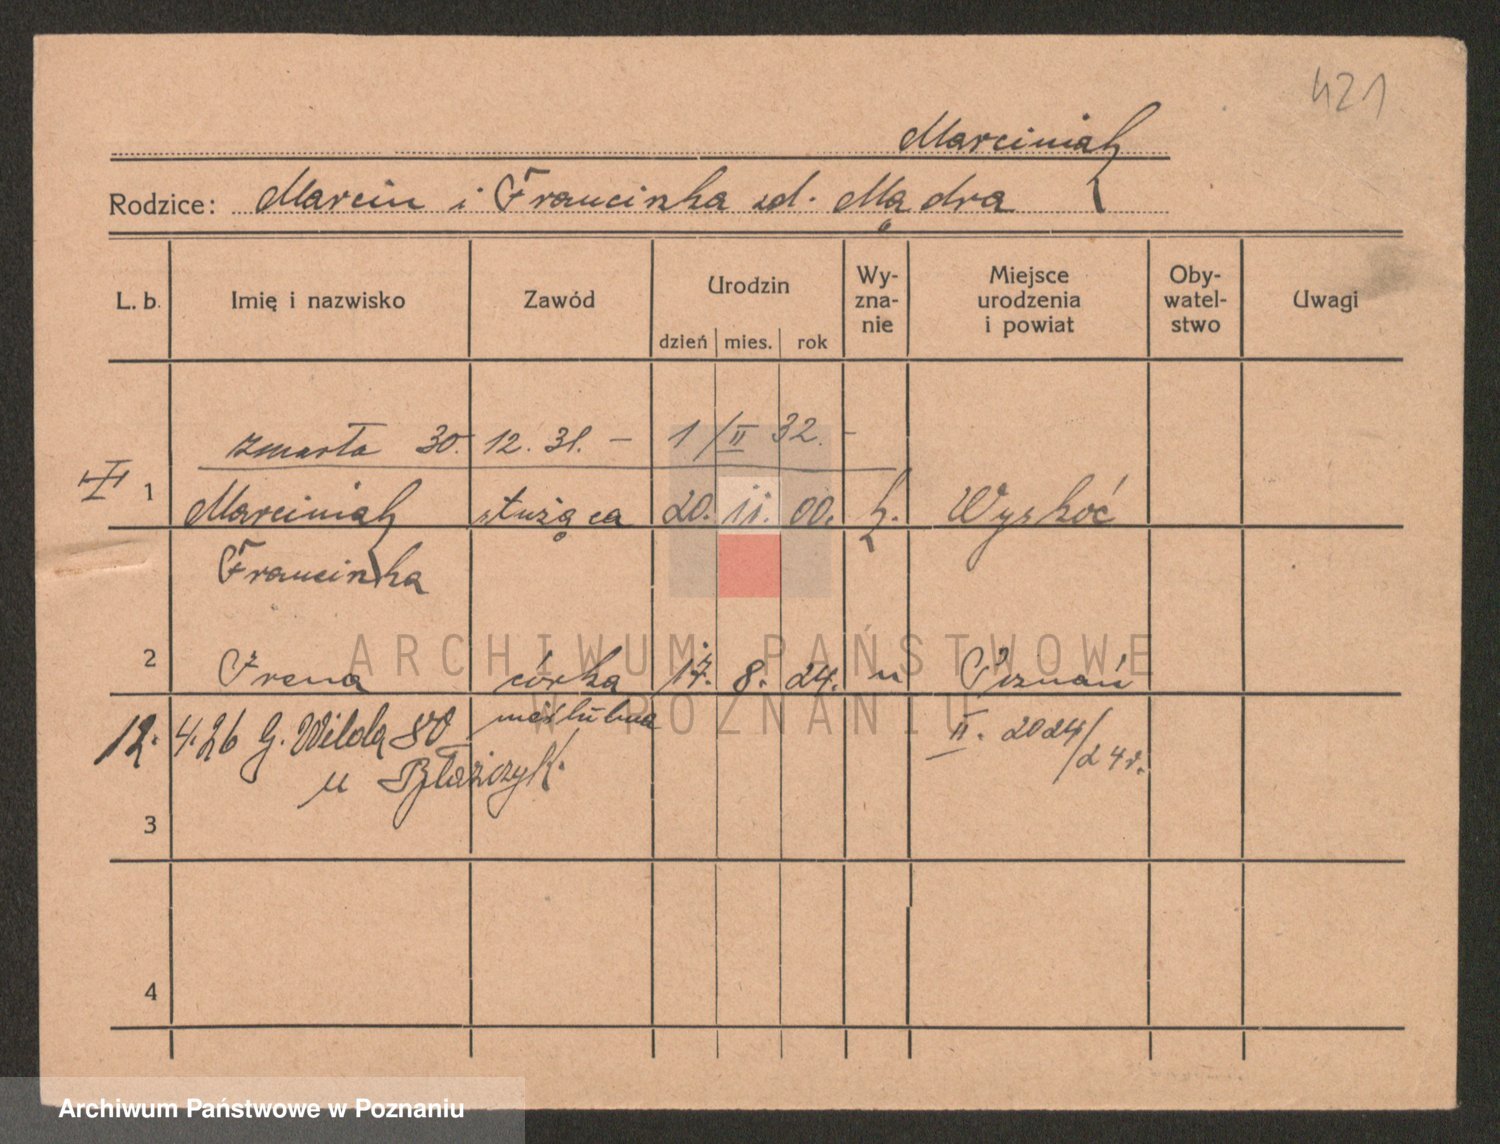 421
Marciniak
Rodzice: Marcin i Franciszka zd. Mądra
L. b. Imię i nazwisko Zawód Urodzin dzień mies. rok Wy-zna-nie Miejsce urodzenia i powiat Oby-watel-stwo Uwagi
zmarła 30. 12. 31. – 1/II 32. –
1 Marciniak służąca 20. 11. 00. k. Wyskoć
Franciszka
2 Irena córka 17. 8. 24. " Poznań
12. 4. 26 G. Wilda 80 nieślubna II. 2024/24r.
u Błażczyk.
3
4
ARCHIWUM PAŃSTWOWE
W POZNANIU
Archiwum Państwowe w Poznaniu